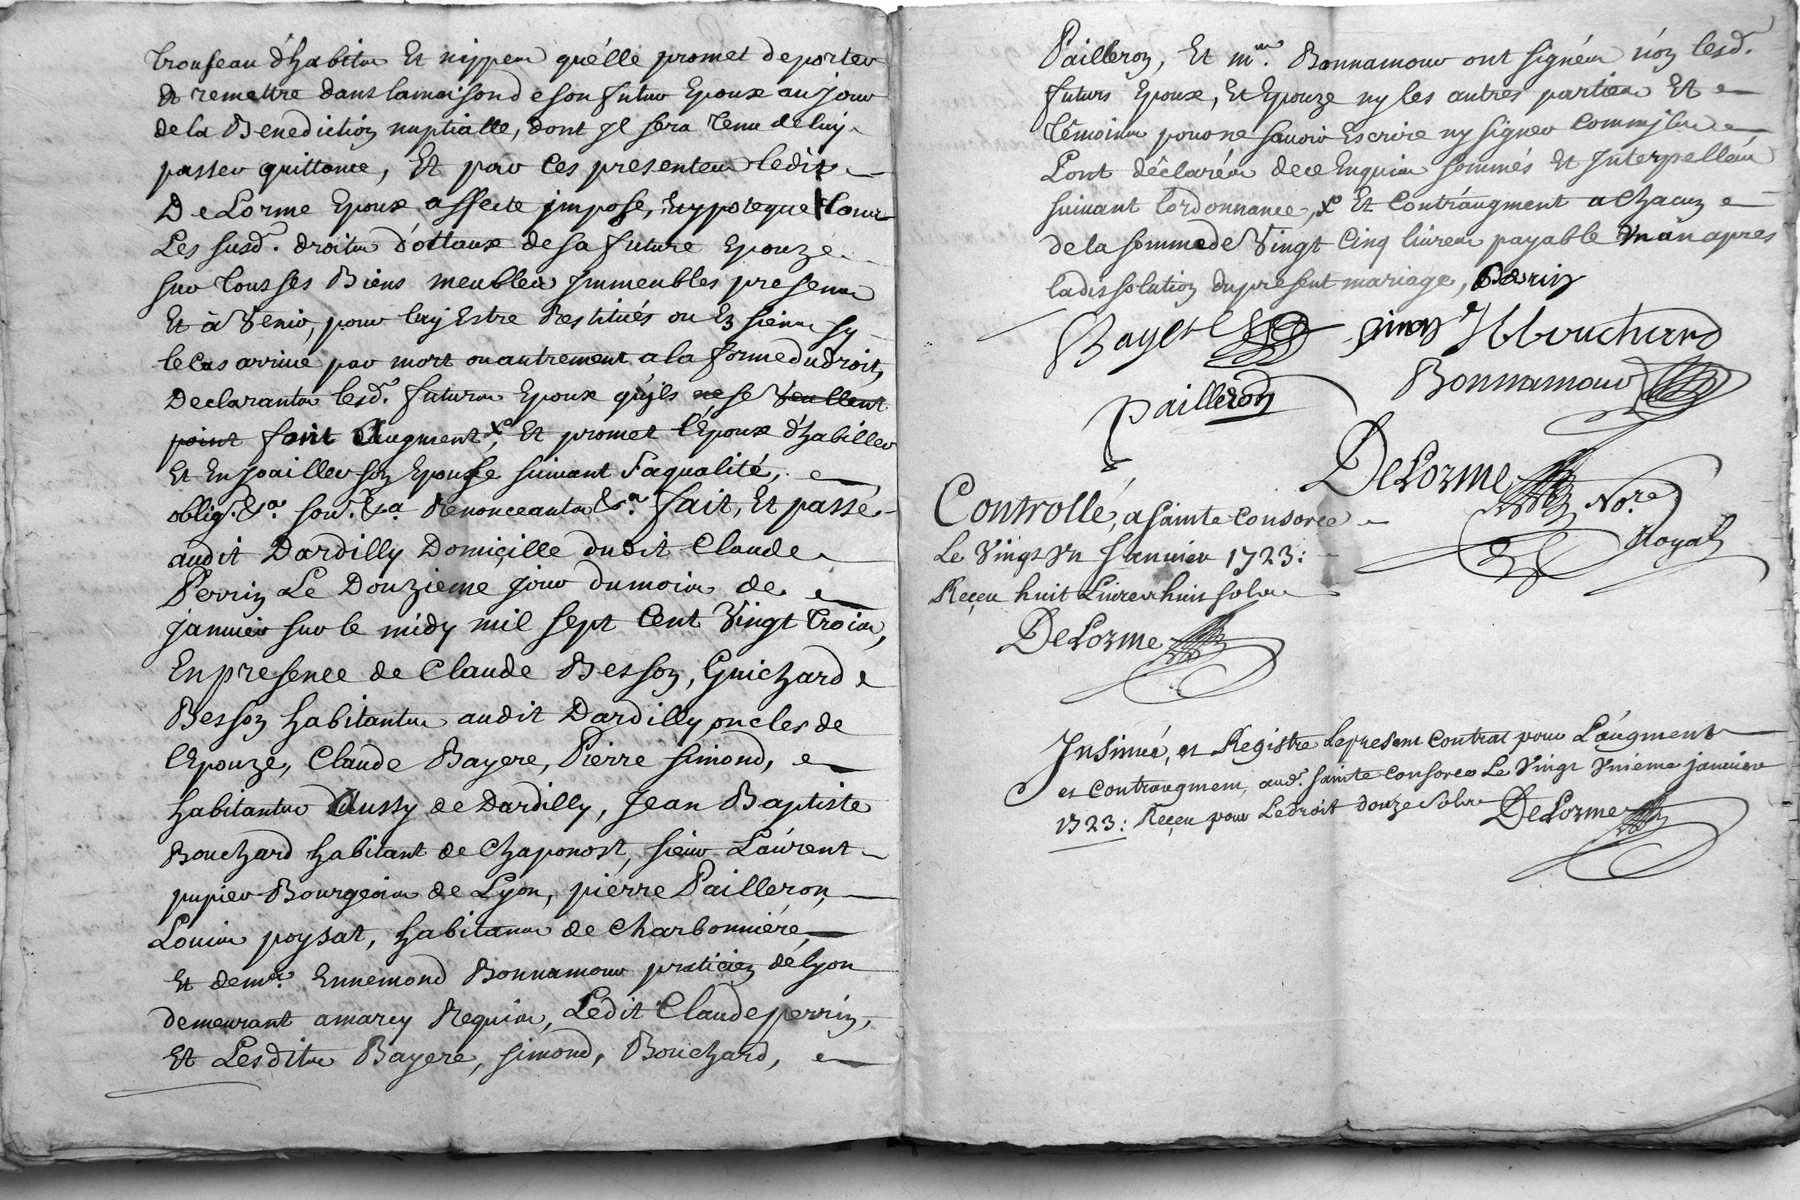 trouseau d'habits Et nippes qu'elle promet deporter
Et remettre dans lamaison de son futur Epoux au jour
de la Benediction nuptialle, dont jl sera tenu de luy
passer quittance, Et par Ces presentes ledit
DeLorme Epoux affecte jmpose, Et ypoteque tous
Les susd. droits d'ottaux de sa future Epouze
sur tous ses Biens meubles Jmmeubles presens
Et à Venir, pour luy Estre Restitués ou Es siens sy
le cas arrive par mort ou autrement a la forme du droit,
Declarants lesd. futurs Epoux qu'ils ne se Veullent
point font augment x, Et promet l'Epoux d'habiller
Et Enjoailler son Epouse suivant saqualité,
oblig. &a. sou. &a. Renonceants &a. fait, Et passé
audit Dardilly Domiçille dudit Claude
Perrin Le Douzieme jour dumois de
janvier sur le midy mil sept Cent Vingt trois,
En presence de Claude Besson, Guichard
Besson habitants audit Dardilly oncles de
l'Epouze, Claude Bayere, Pierre Simond,
habitants aussy de Dardilly, Jean Baptiste
Bouchard habitant de Chaponost, sieur Laurent
pupier Bourgeois de Lyon, pierre Pailleron,
Louis poysat, habitans de Charbonniére,
Et de mr. Ennemond Bonnamour praticien délyon
demeurant amarcy Requis, Lédit Claude perrin,
Et Lesdits Bayere, simond, Bouchard,
Pailleron, Et mre. Bonnamour ont signés non lesd.
futurs Epoux, Et Epouze ny les autres parties Et
témoins pour ne savoir Escrire ny signer Comme jls
L'ont déclarés dece Enquis sommés Et Jnterpellés
suivant lordonnance, x Et Contraugment a Chacun
de la somme de Vingt Cinq livres payable Vn an apres
la dissolution du present mariage, Perrin
Bayere simon J Bouchard
Pailleron Bonnamour
DeLorme No.re
Royal
Controllé, a Sainte Consorce
Le Vingt Vn Janvier 1723:
Reçeu huit Livres huit sols
DeLorme
Jnsinué, et Registré Lepresent Contrat pour L'augment
et Contraugment, aud. Sainte Consorce Le Vingt Vnieme janvier
1723: Reçeu pour Ledroit douze sols DeLorme